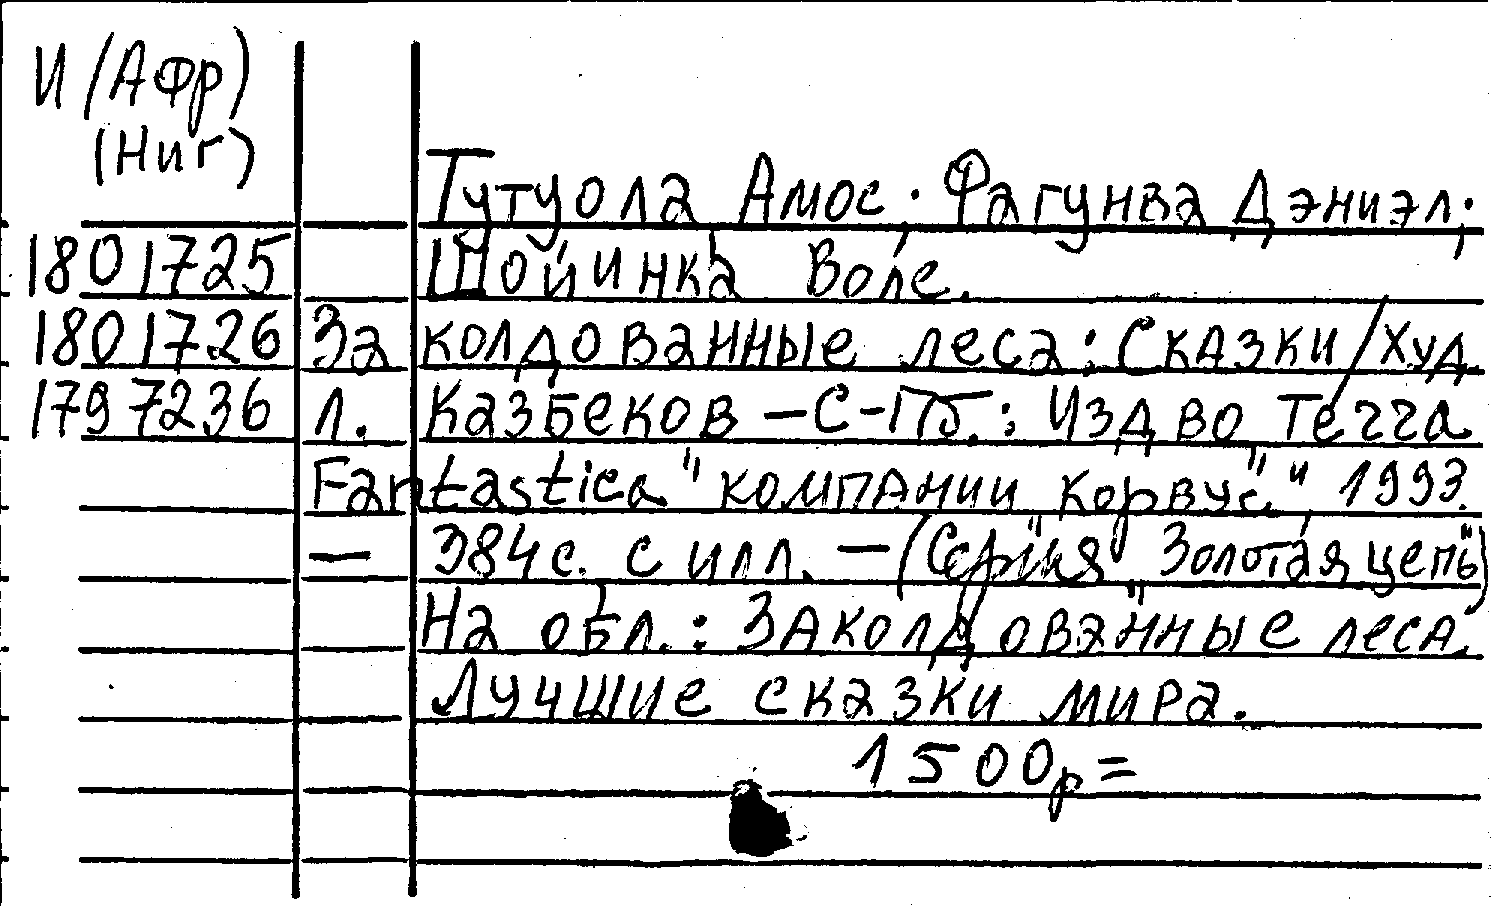 И/(Афр)
(Ниг)
Тутуола Амос; Фагунва Дэниэл;
1801725 Шойинка Воле.
1801726 Заколдованные леса: Сказки/Худ.
1797236 Л. Казбеков – С-Пб.: Издво Терра
Fantastica "компании Корвус", 1993.
— 384с. с илл. — (Серия "Золотая цепь")
На обл.: Заколдованные леса.
Лучшие сказки мира.
1500р=